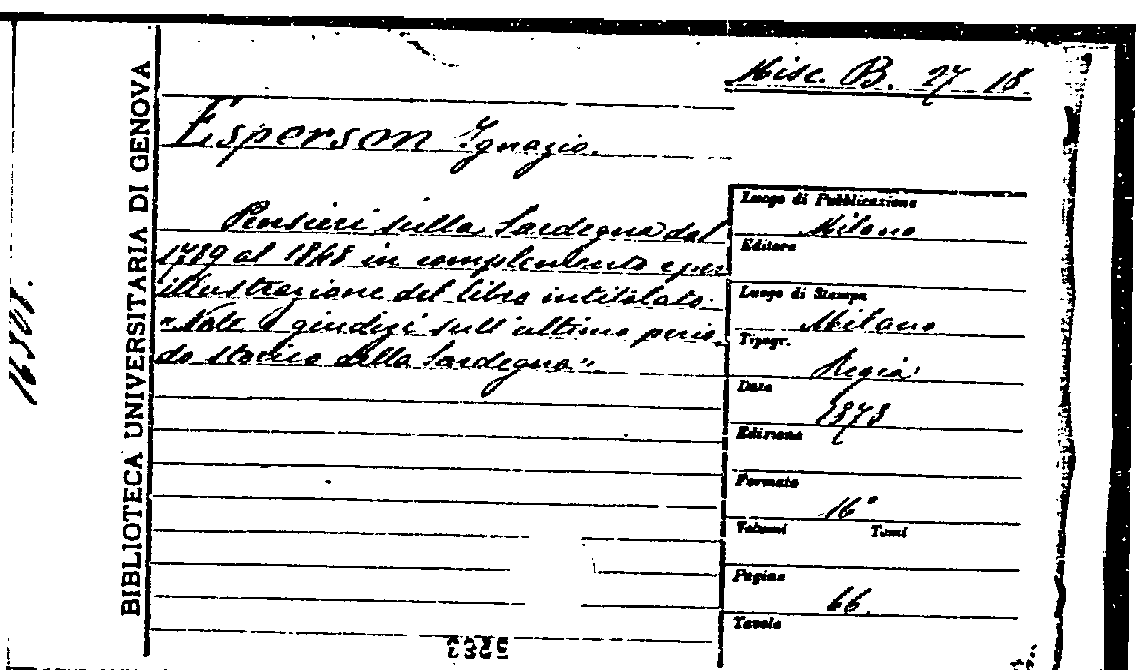 Misc. B. 27 18.
Esperson Ignazio.
Pensieri sulla Sardegna dal
1789 al 1848 in complemento e per
illustrazione del libro intitolato
"Note e giudizi sull'ultimo perio-
do storico della Sardegna".
BIBLIOTECA UNIVERSITARIA DI GENOVA
Luogo di Pubblicazione
Milano
Editore
Luogo di Stampa
Milano
Tipogr.
Regia
Data
1878
Edizione
Formato
16°
Volumi Tomi
Pagine
66.
Tavole